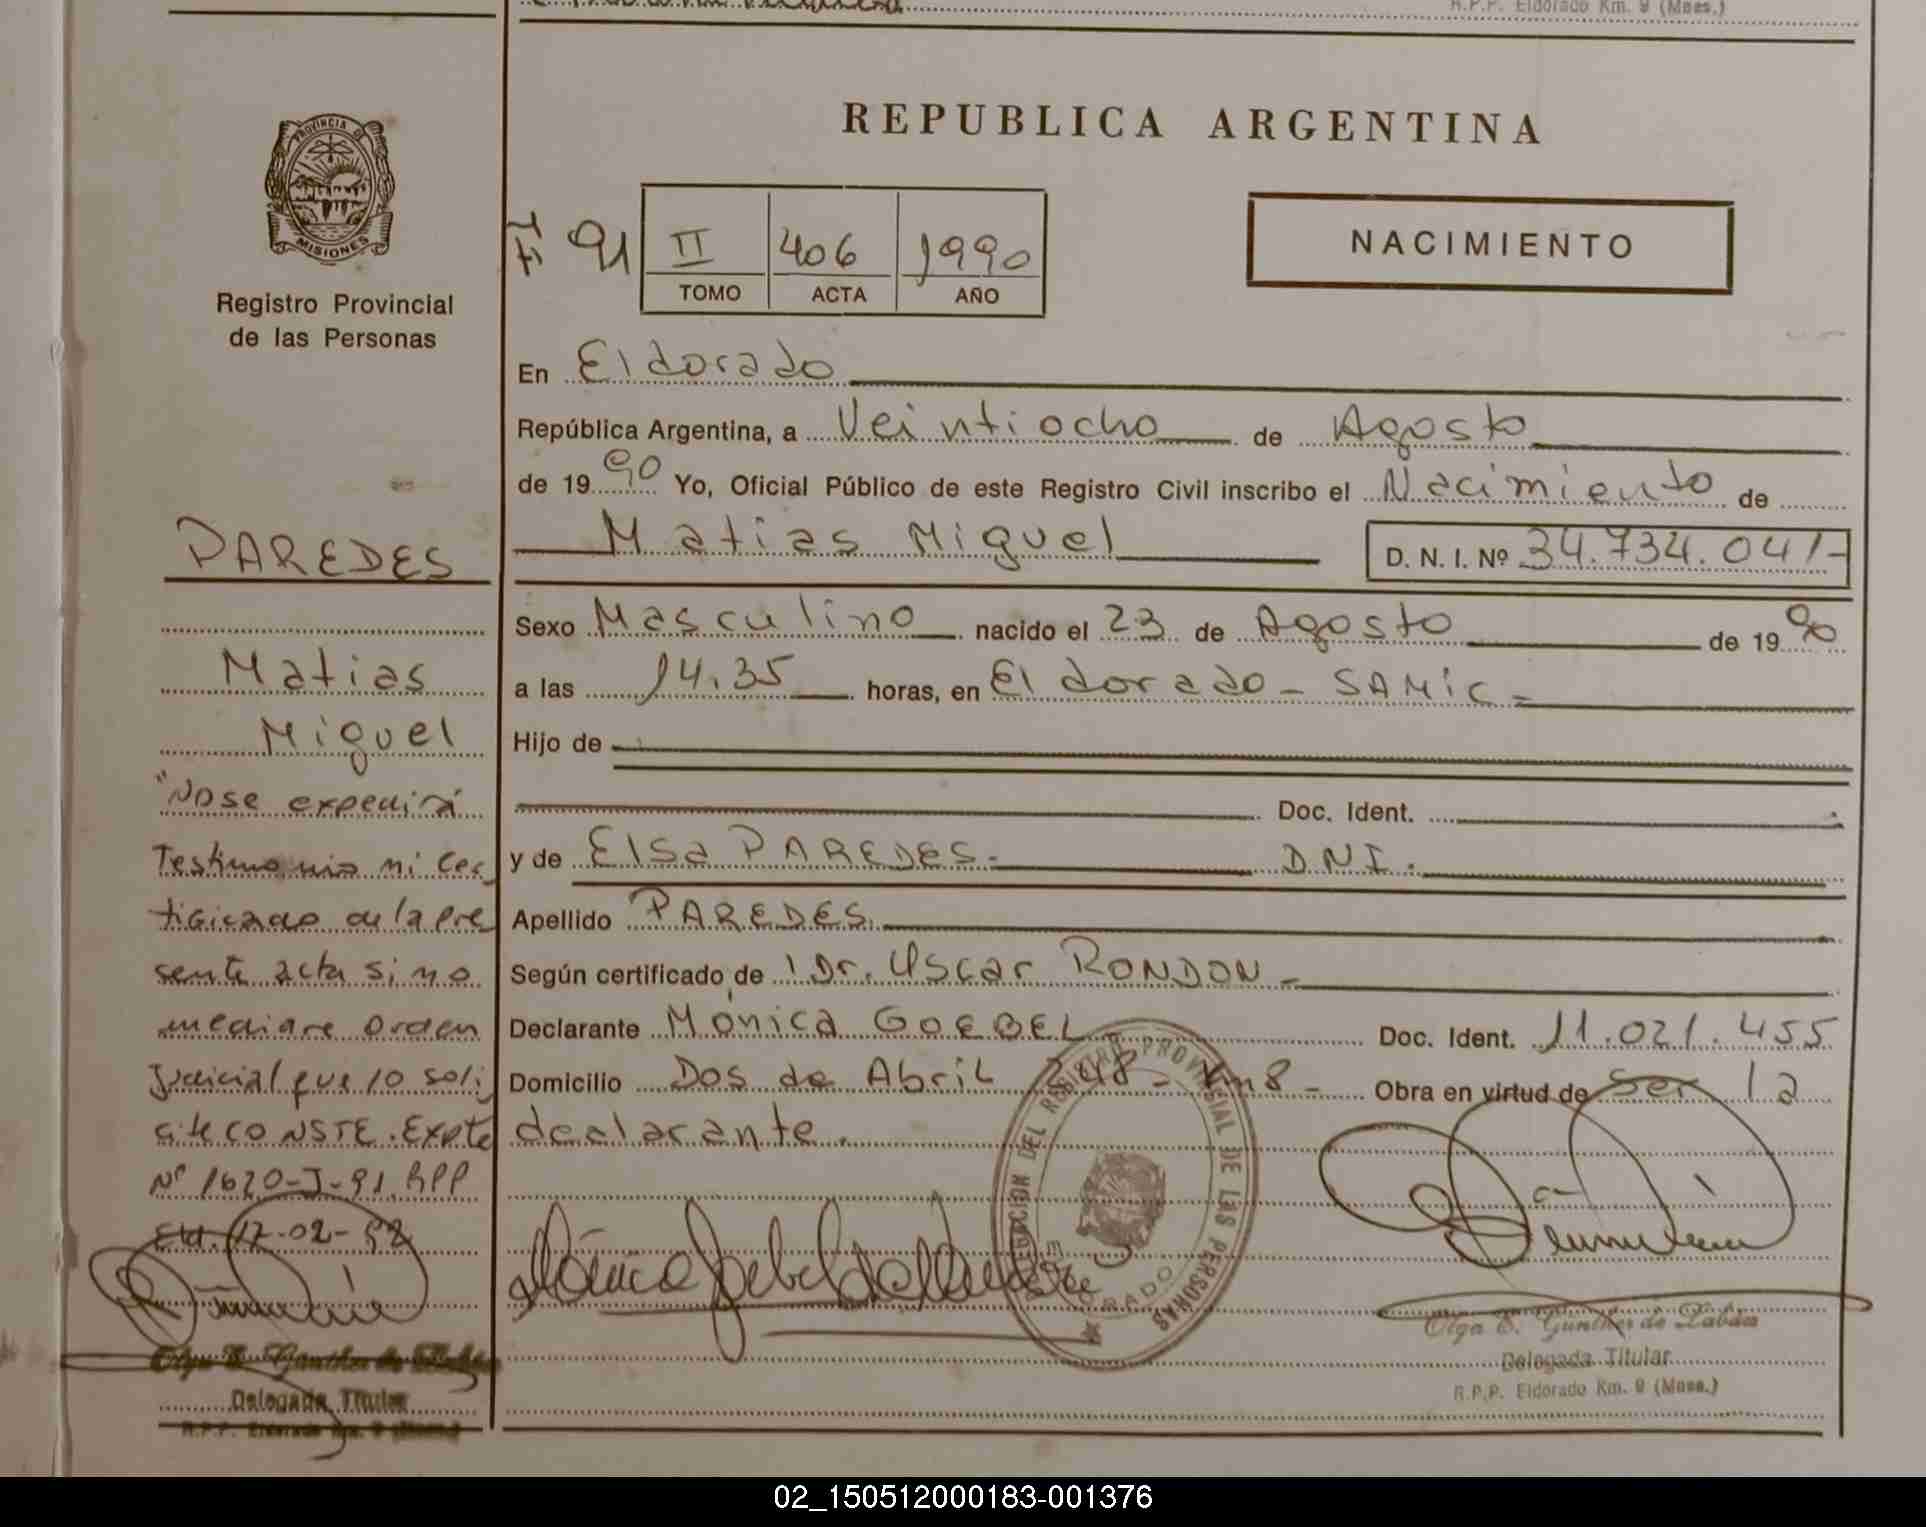 R.P.P. Eldorado Km. 9 (Mnes.)
PROVINCIA DE
MISIONES
Registro Provincial
de las Personas
PAREDES
Matias
Miguel
"No se expedirá
Testimonio ni Cer
tificado de la pre
sente acta si no
mediare orden
Judicial que lo soli
cite CONSTE. Expte
Nº 1620-J-91. RPP
Eld. 17-02-92
Olga E. Gunther de Labán
Delegada Titular
R.P.P. Eldorado Km. 9 (Mnes.)
REPUBLICA ARGENTINA
Fº 91 II 406 1990
TOMO ACTA AÑO
NACIMIENTO
En Eldorado
República Argentina, a Veintiocho de Agosto
de 1990 Yo, Oficial Público de este Registro Civil inscribo el Nacimiento de
Matias Miguel D. N. I. Nº 34.734.041-
Sexo Masculino nacido el 23 de Agosto de 1990
a las 14.35 horas, en Eldorado - SAMIC -
Hijo de
Doc. Ident.
y de Elsa PAREDES.- D N I.
Apellido PAREDES.
Según certificado de Dr. Oscar RONDON -
Declarante Mónica GOEBEL Doc. Ident. 11.021.455
Domicilio Dos de Abril 248 - Km 8 - Obra en virtud de Ser la
declarante.
DELEGACION DEL REGISTRO PROVINCIAL DE LAS PERSONAS
ELDORADO
Olga E. Gunther de Labán
Delegada Titular
R.P.P. Eldorado Km. 9 (Mnes.)
02_150512000183-001376